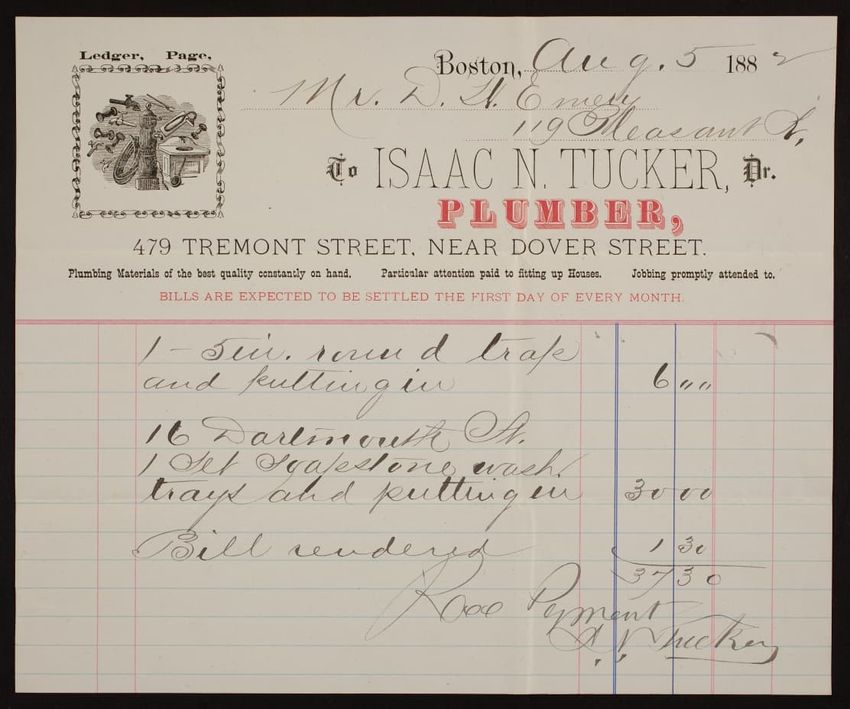 Ledger, Page,
Boston, Aug. 5 1882
Mr. D. H. Emery
119 Pleasant St,
To ISAAC N. TUCKER, Dr.
PLUMBER,
479 TREMONT STREET, NEAR DOVER STREET.
Plumbing Materials of the best quality constantly on hand. Particular attention paid to fitting up Houses. Jobbing promptly attended to.
BILLS ARE EXPECTED TO BE SETTLED THE FIRST DAY OF EVERY MONTH.
1 - 5 in. round trap
and putting in 6 " "
16 Dartmouth St.
1 Set Soapstone wash
trays and putting in 30 00
Bill rendered 1 30
37 30
Payment
I. N. Tucker